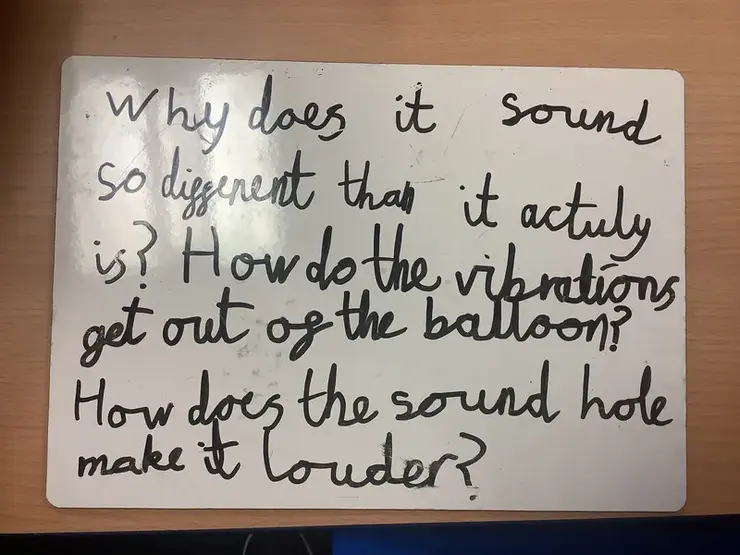 Why does it sound
so diggerent than it actuly
is? How do the vibrations
get out og the balloon?
How does the sound hole
make it louder?